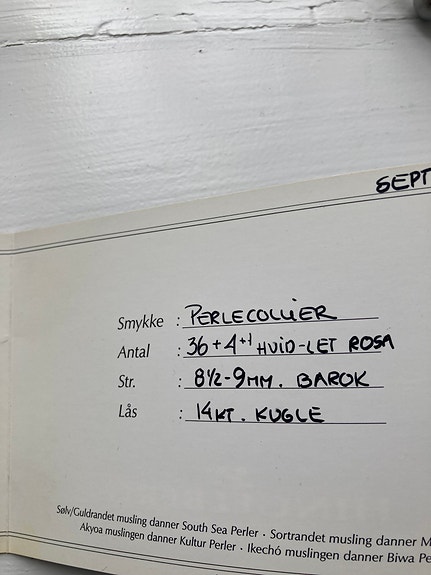 SEPT
Smykke : PERLECOLLIER
Antal : 36+4+1 HVID-LET ROSA
Str. : 8½-9MM. BAROK
Lås : 14KT. KUGLE
Sølv/Guldrandet musling danner South Sea Perler · Sortrandet musling danner M
Akyoa muslingen danner Kultur Perler · Ikechó muslingen danner Biwa Pe